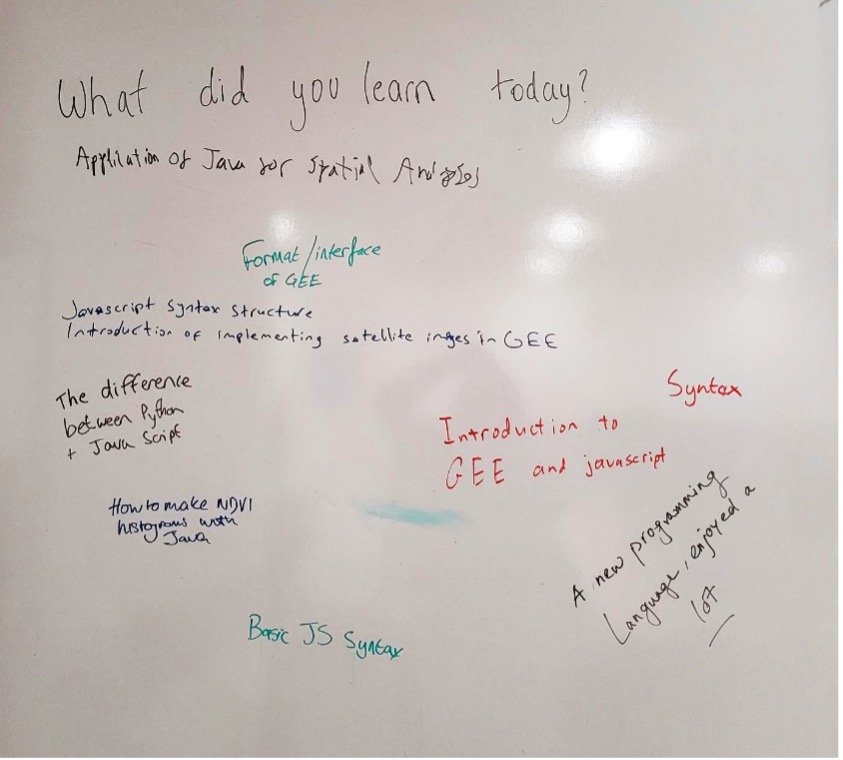 What did you learn today?
Application of Java for Spatial
Format/interface
of GEE
Javascript Syntax Structure
Introduction of implementing satellite imges in GEE
The difference
between Python
+ Java Script
Syntax
Introduction to
GEE and javascript
How to make NDVI
histograms with
Java
A new programming
Language, enjoyed a
lot
Basic JS Syntax